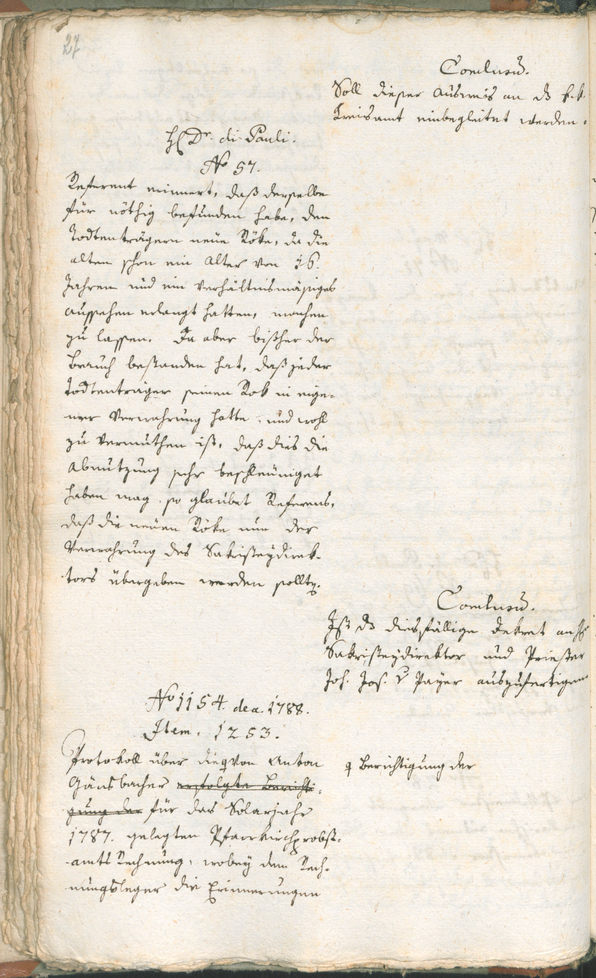 27
Conclusum.
Soll dieser Ausweis an ds k. k.
Kreisamt einbegleitet werden.
H Dr. di Pauli.
No 57.
Referent erinnert, daß derselbe
für nöthig befunden habe, den
Todtenträgern neue Röke, da die
alten schon ein Alter von 16.
Jahren und ein verhältnismäsiges
Aussehen erlangt hatten, machen
zu lassen. Da aber bißher der
Brauch bestanden hat, daß jeder
Todtenträger seinen Rok in eige-
ner Verwahrung hatte, und wohl
zu vermuthen ist, daß dies die
Abnutzung sehr beschleuniget
haben mag, so glaubet Referens,
daß die neuen Röke nun der
Verwahrung des Sakristeydirek-
tors übergeben werden sollten.
Conclusum.
Ist ds diesfällige Dekret an H
Sakristeydirektor und Priester
Joh. Jos. v Payer auszufertigen
No 1154. de a. 1788.
Item. 1253.
Protokoll über die von Anton
Gänsbacher erfolgte Berichti-
gung der für das Solarjahr
1787. gelegten Pfarrkirchprobst-
amts Rechnung, wobey dem Rech-
nungsleger die Erinnerungen
Berichtigung der